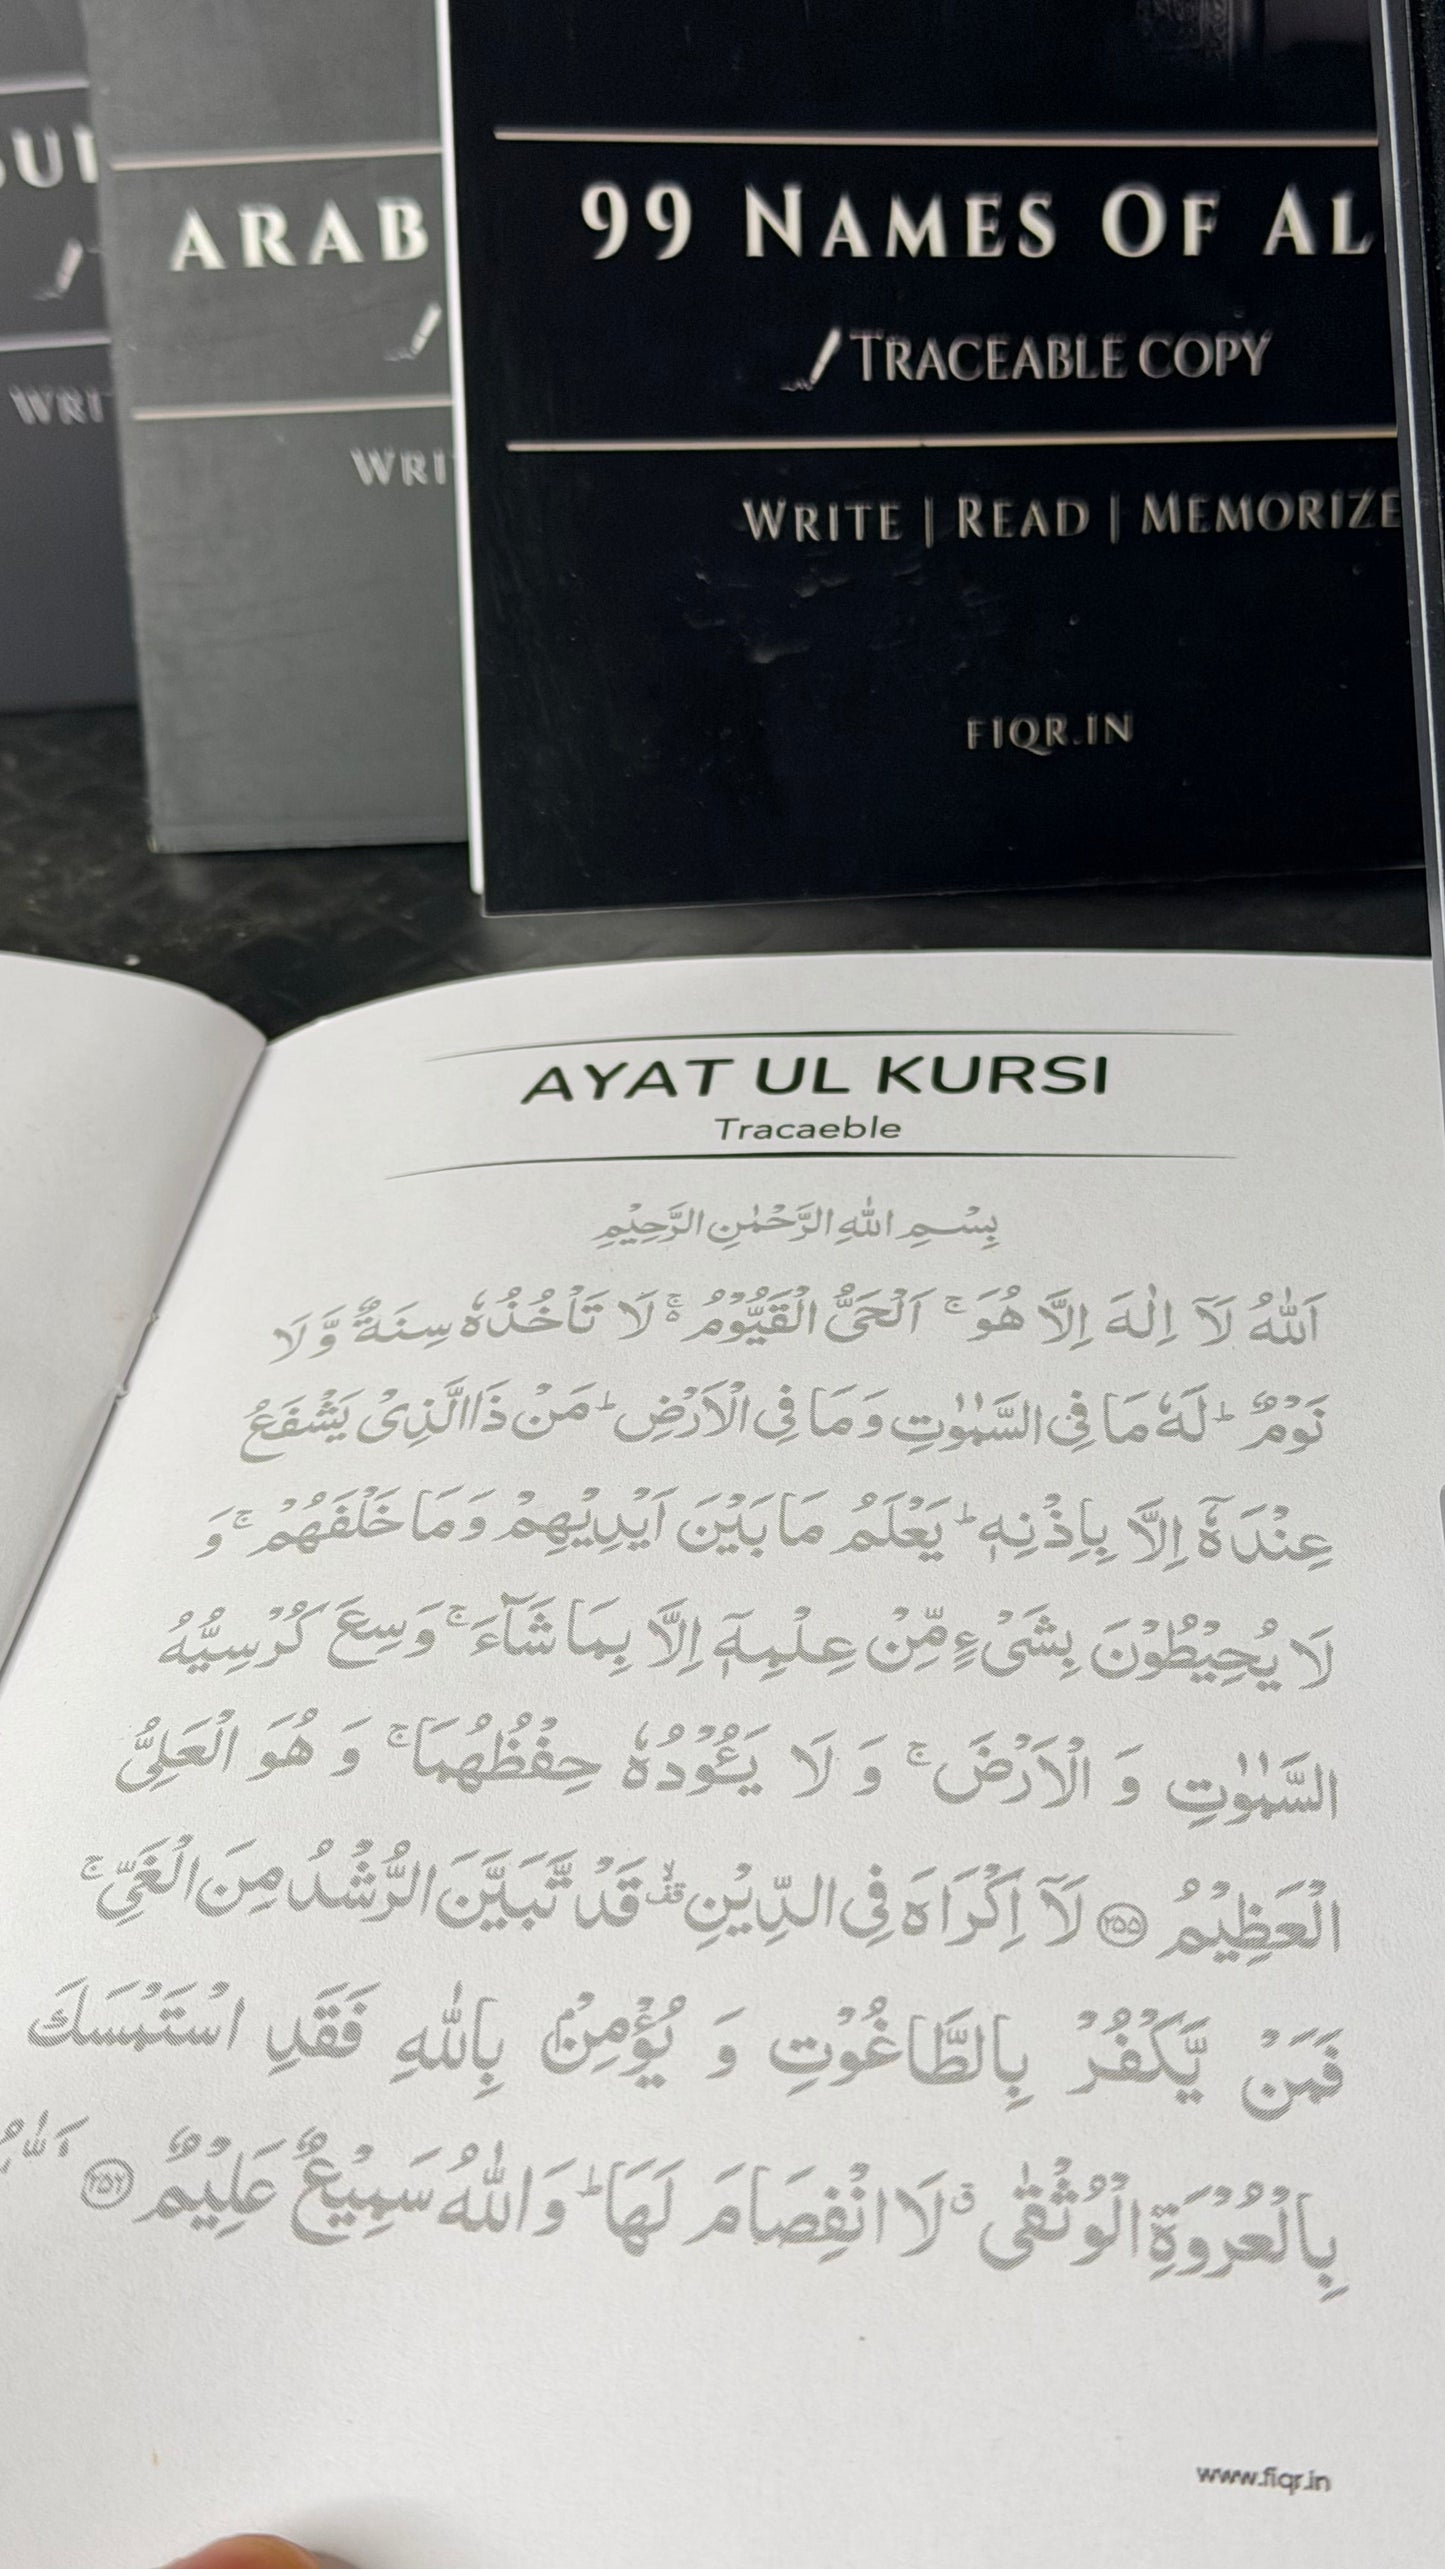 ARAB
WRI
99 NAMES OF AL
TRACEABLE COPY
WRITE | READ | MEMORIZE
FIQR.IN
WRI
AYAT UL KURSI
Tracaeble
بِسْمِ اللهِ الرَّحْمٰنِ الرَّحِيْمِ
اَللّٰهُ لَاۤ اِلٰهَ اِلَّا هُوَ ۚ اَلْحَیُّ الْقَیُّوْمُ ۚ۬ لَا تَاْخُذُهٗ سِنَةٌ وَّ لَا
نَوْمٌ ؕ لَهٗ مَا فِی السَّمٰوٰتِ وَ مَا فِی الْاَرْضِ ؕ مَنْ ذَا الَّذِیْ یَشْفَعُ
عِنْدَهٗۤ اِلَّا بِاِذْنِهٖ ؕ یَعْلَمُ مَا بَیْنَ اَیْدِیْهِمْ وَ مَا خَلْفَهُمْ ۚ وَ
لَا یُحِیْطُوْنَ بِشَیْءٍ مِّنْ عِلْمِهٖۤ اِلَّا بِمَا شَآءَ ۚ وَسِعَ كُرْسِیُّهُ
السَّمٰوٰتِ وَ الْاَرْضَ ۚ وَ لَا یَـُٔوْدُهٗ حِفْظُهُمَا ۚ وَ هُوَ الْعَلِیُّ
الْعَظِیْمُ ۝۲۵۵ لَاۤ اِكْرَاهَ فِی الدِّیْنِ ۙ۫ قَدْ تَّبَیَّنَ الرُّشْدُ مِنَ الْغَیِّ ۚ
فَمَنْ یَّكْفُرْ بِالطَّاغُوْتِ وَ یُؤْمِنْۢ بِاللّٰهِ فَقَدِ اسْتَمْسَكَ
بِالْعُرْوَةِ الْوُثْقٰی ۗ لَا انْفِصَامَ لَهَا ؕ وَ اللّٰهُ سَمِیْعٌ عَلِیْمٌ ۝۲۵۶ اَللّٰهُ
www.fiqr.in